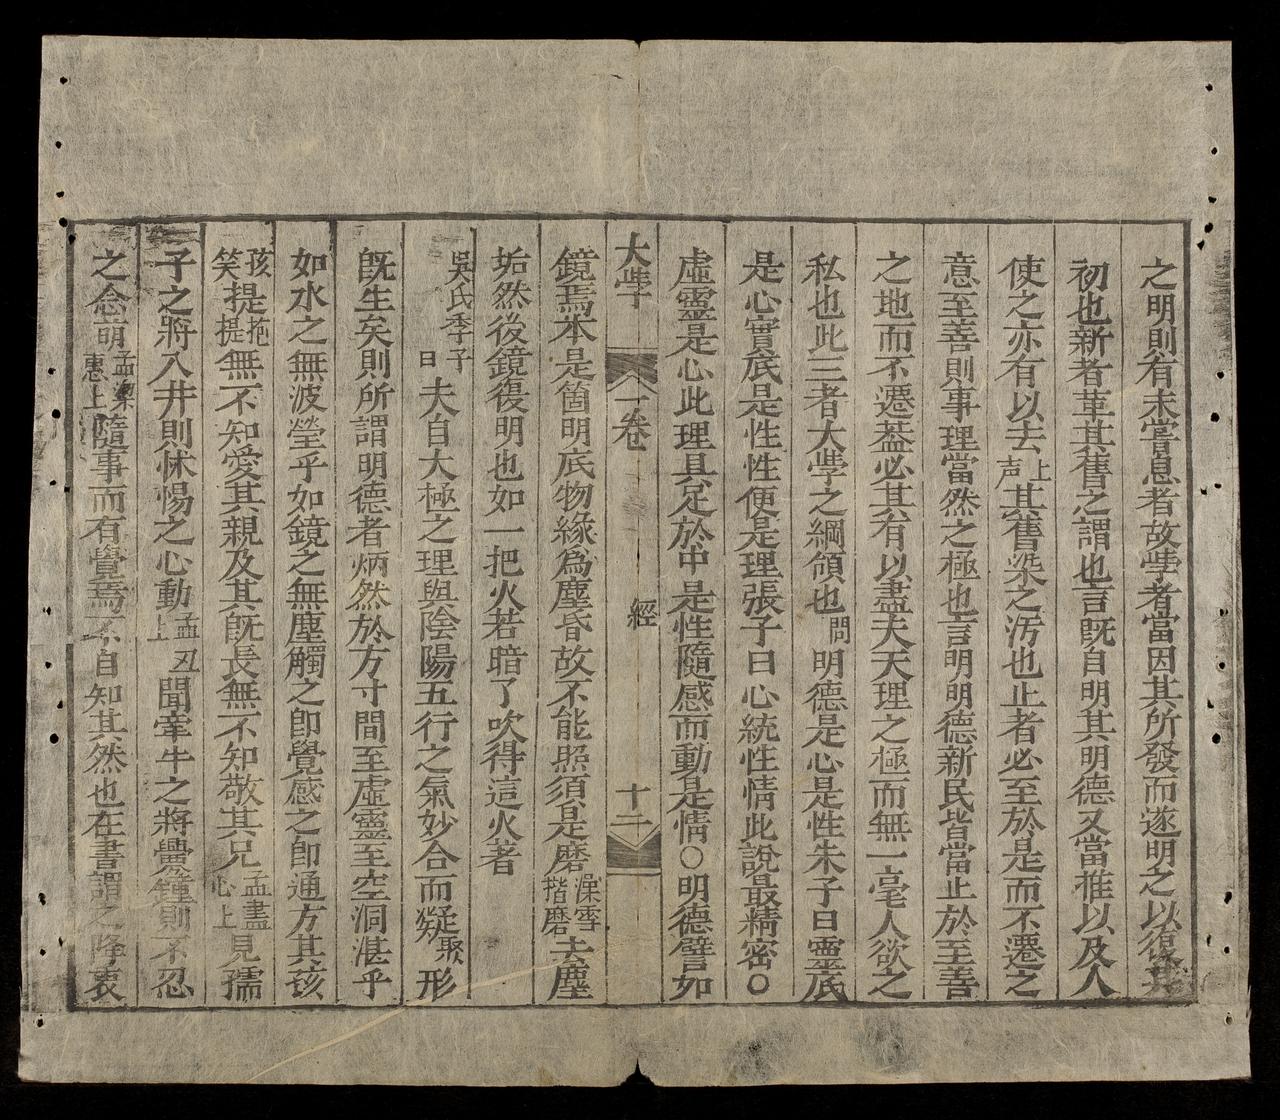 之明則有未嘗息者故學者當因其所發而遂明之以復其
初也新者革其舊之謂也言既自明其明德又當推以及人
使之亦有以去上声其舊染之汚也止者必至於是而不遷之
意至善則事理當然之極也言明明德新民皆當止於至善
之地而不遷蓋必其有以盡夫天理之極而無一毫人欲之
私也此三者大學之綱領也問明德是心是性朱子曰靈底
是心實底是性性便是理張子曰心統性情此說最精密○
虛靈是心此理具足於中是性隨感而動是情○明德譬如
大學 一卷 經 十二
鏡焉本是箇明底物緣為塵昏故不能照須是磨澡雪揩磨去塵
垢然後鏡復明也如一把火若暗了吹得這火著
吳氏季子曰夫自大極之理與陰陽五行之氣妙合而凝聚形
既生矣則所謂明德者炳然於方寸間至虛靈至空洞湛乎
如水之無波瑩乎如鏡之無塵觸之即覺感之即通方其孩
孩笑提抱提無不知愛其親及其既長無不知敬其兄孟盡心上見孺
子之將入井則怵惕之心動孟丑上聞牽牛之將釁鐘則不忍
之念萌孟梁惠上隨事而有覺焉不自知其然也在書謂之降衷